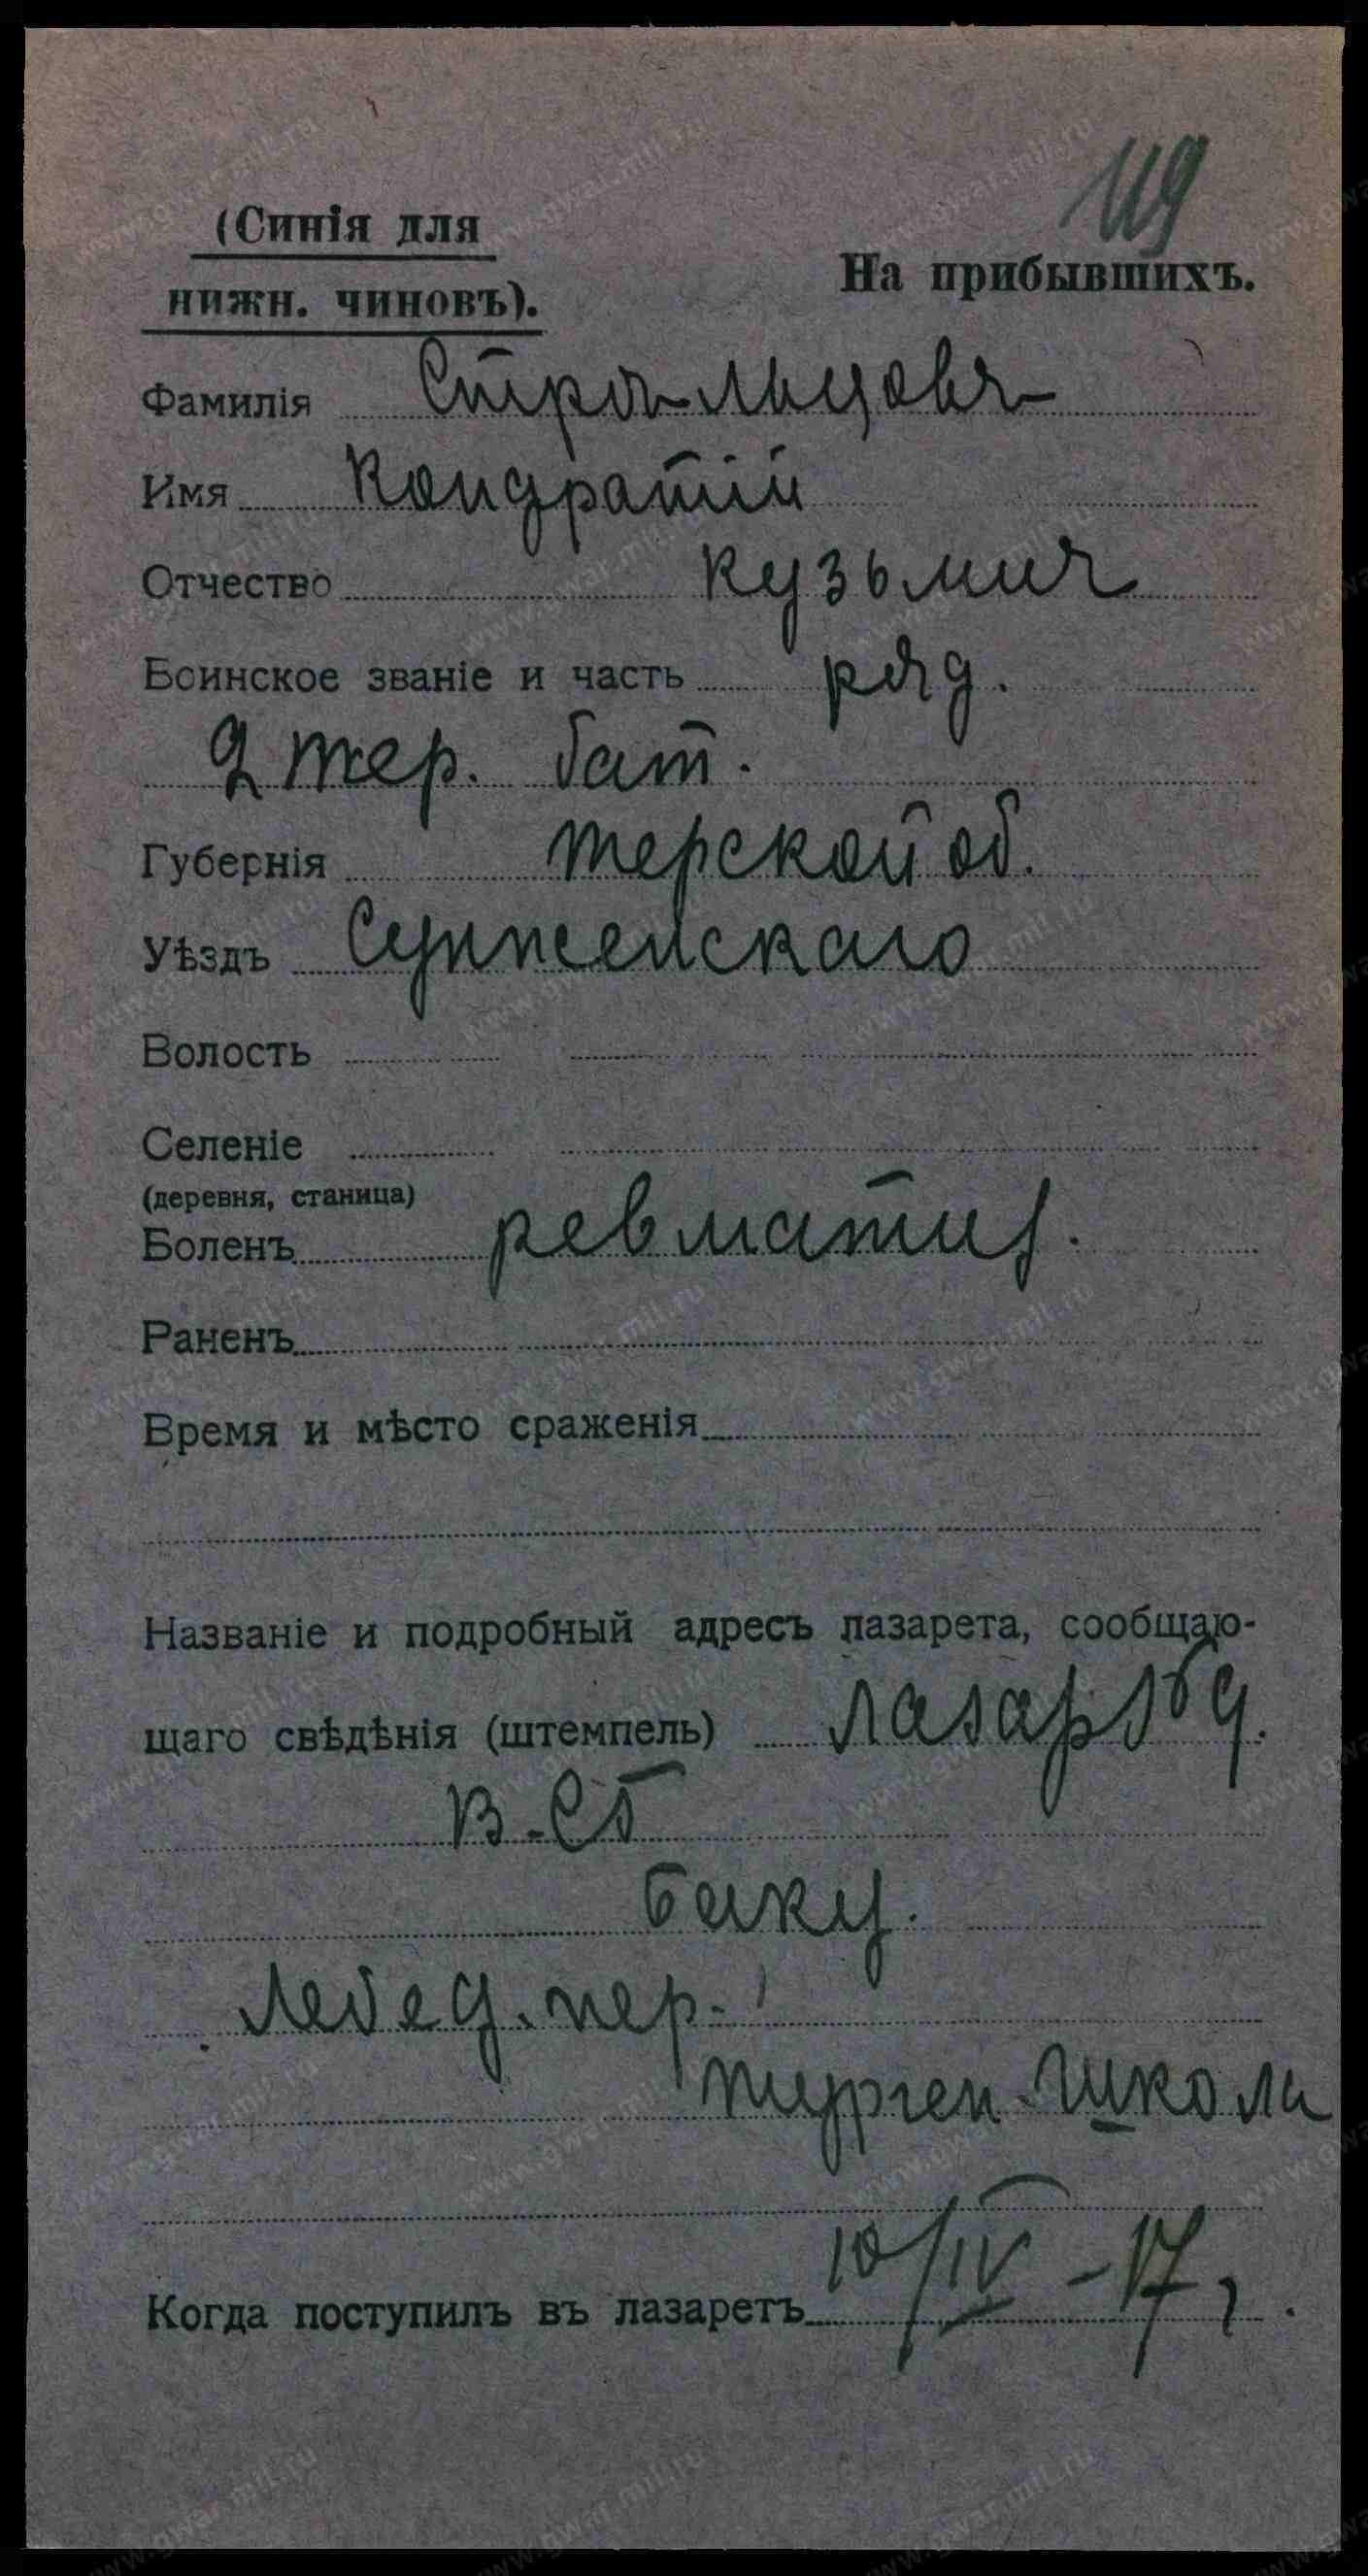 119
(Синія для
нижн. чиновъ).
На прибывшихъ.
Фамилія Стрѣльцовъ
Имя Кондратій
Отчество Кузьмич
Воинское званіе и часть ряд.
2 тер. бат.
Губернія Терской об.
Уѣздъ Сунженскаго
Волость
Селеніе
(деревня, станица)
Боленъ ревматиз.
Раненъ
Время и мѣсто сраженія
Названіе и подробный адресъ лазарета, сообщаю-
щаго свѣдѣнія (штемпель) Лазар
Баку.
Лебед. пер.
Турген. школа
Когда поступилъ въ лазаретъ 10/IV - 17 г.
www.gwar.mil.ru